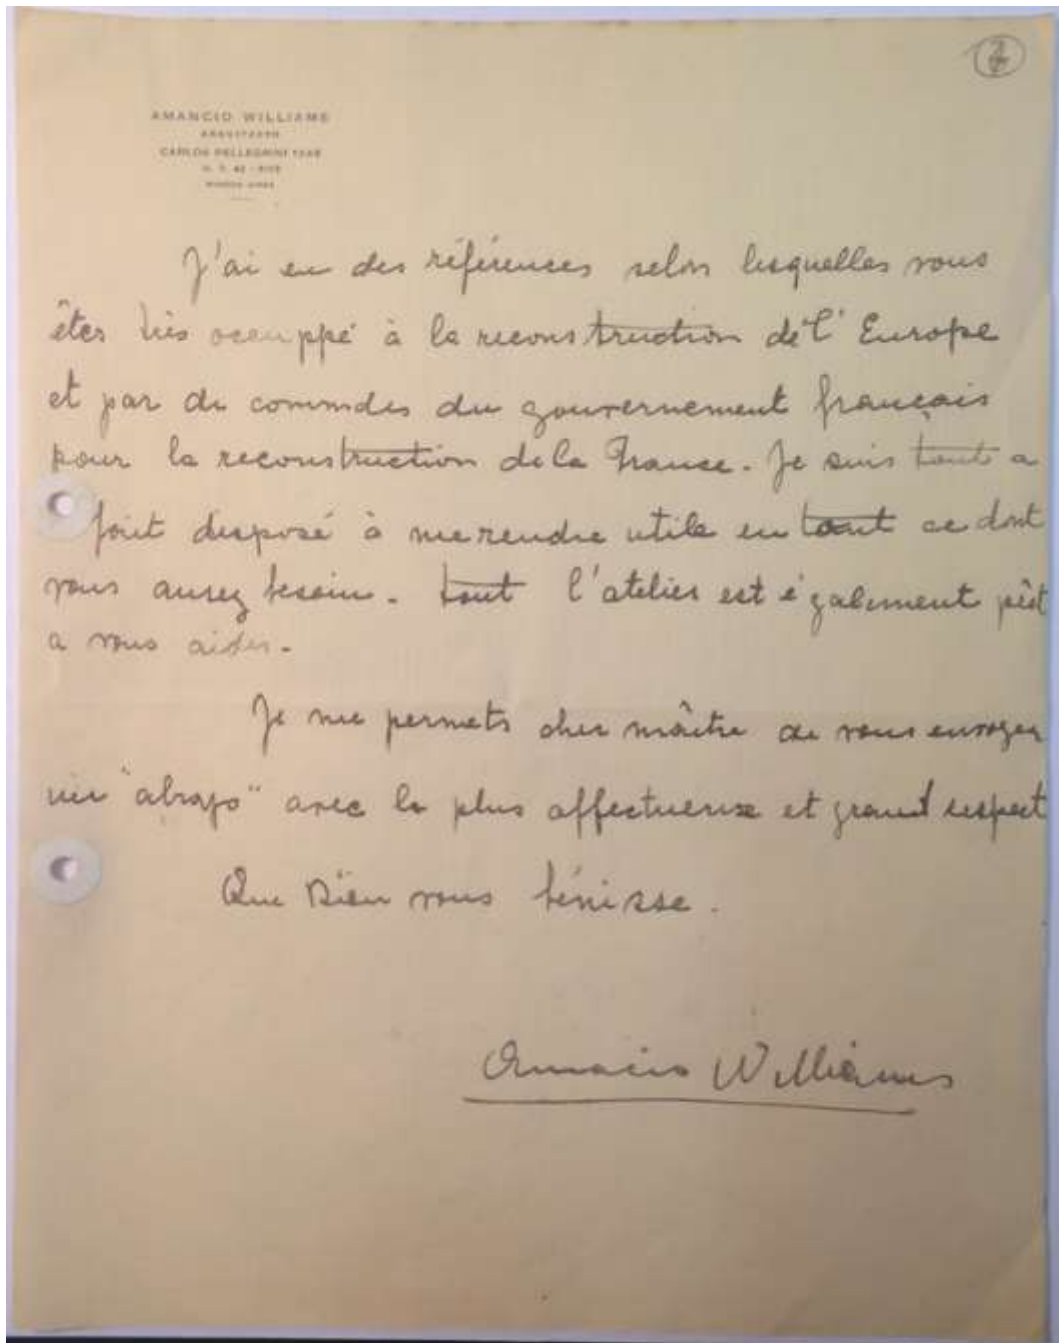 AMANCIO WILLIAMS
ARQUITECTO
CARLOS PELLEGRINI
BUENOS AIRES
J'ai eu des références selon lesquelles vous
êtes très occuppé à la reconstruction de l'Europe
et par de commdes du gouvernement français
pour la reconstruction de la France. Je suis tout a
fait disposé à me rendre utile en tout ce dont
vous aurez besoin. tout l'atelier est également pêt
a vous aider.
Je me permets cher maître de vous envoyer
un "abrazo" avec le plus affectueuse et grand respect
Que Dieu vous bénisse.
Amancio Williams